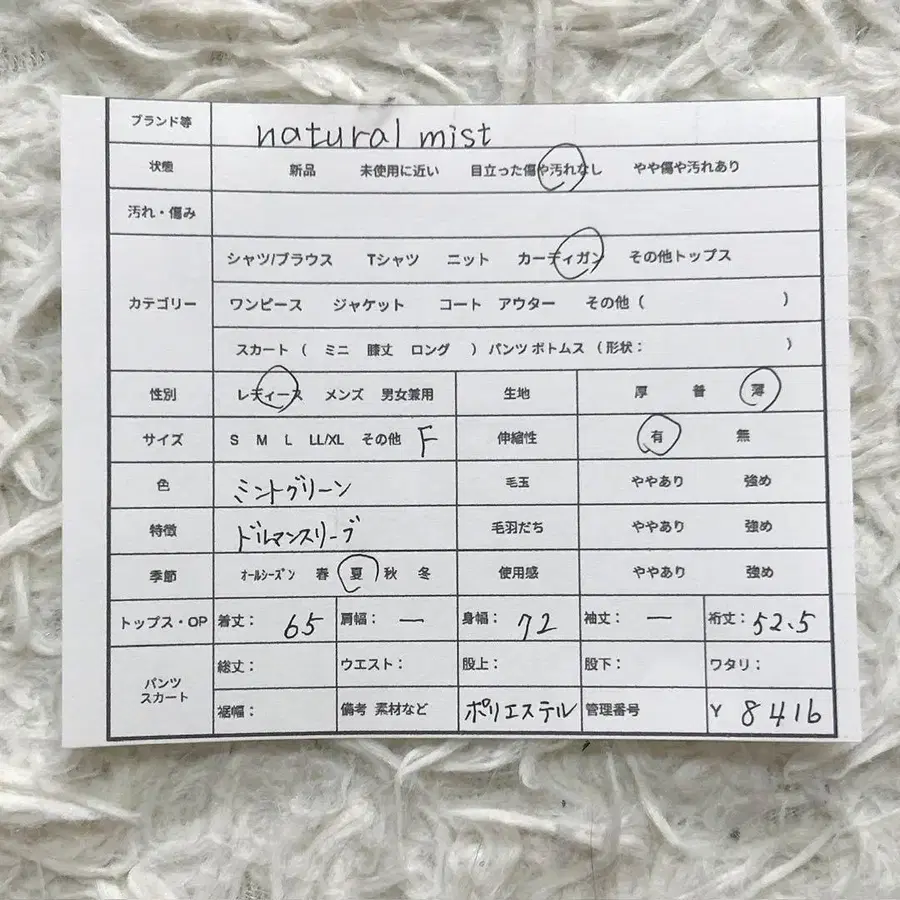 ブランド等 natural mist
状態 新品 未使用に近い 目立った傷や汚れなし やや傷や汚れあり
汚れ・傷み
シャツ/ブラウス Tシャツ ニット カーディガン その他トップス
カテゴリー ワンピース ジャケット コート アウター その他 ( )
スカート ( ミニ 膝丈 ロング ) パンツ ボトムス (形状: )
性別 レディース メンズ 男女兼用 生地 厚 普 薄
サイズ S M L LL/XL その他 F 伸縮性 有 無
色 ミントグリーン 毛玉 ややあり 強め
特徴 ドルマンスリーブ 毛羽だち ややあり 強め
季節 オールシーズン 春 夏 秋 冬 使用感 ややあり 強め
トップス・OP 着丈: 65 肩幅: ー 身幅: 72 袖丈: ー 裄丈: 52.5
パンツ スカート 総丈: ウエスト: 股上: 股下: ワタリ:
裾幅: 備考 素材など ポリエステル 管理番号 Y 8416